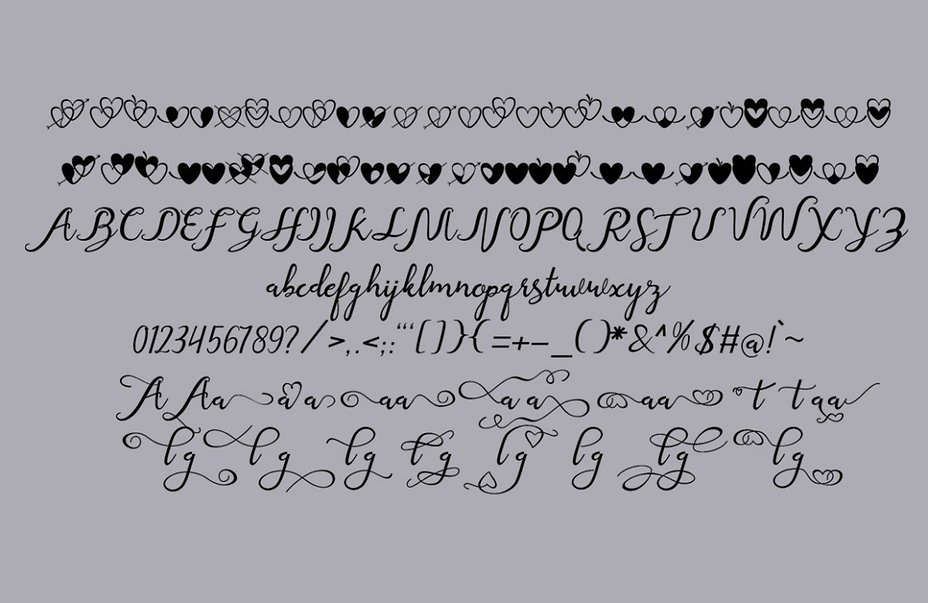 ABCDEFGHIJKLMNOPQRSTUVWXYZ
abcdefghijklmnopqrstuvwxyz
0123456789?/>,.<;:“‘[]}{=+-_()*&^%$#@!`~
A Aa aa aa aa aa t t aa
lg lg lg lg lg lg lg lg